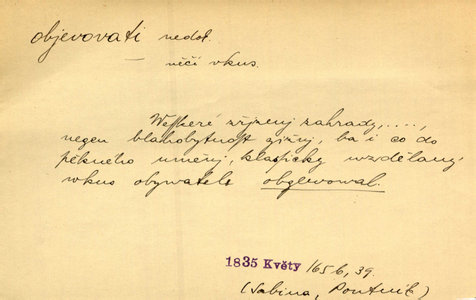 objevovati nedok.
— něčí vkus.
Weškeré zřjzenj zahrady, ....,
negen blahobytnost zgižnj, ba i co do
pěkného uměnj, klasicky wzdělaný
wkus obywatele obgewowal.
1835 Květy 165 b, 39.
(Sabina, Poutník)